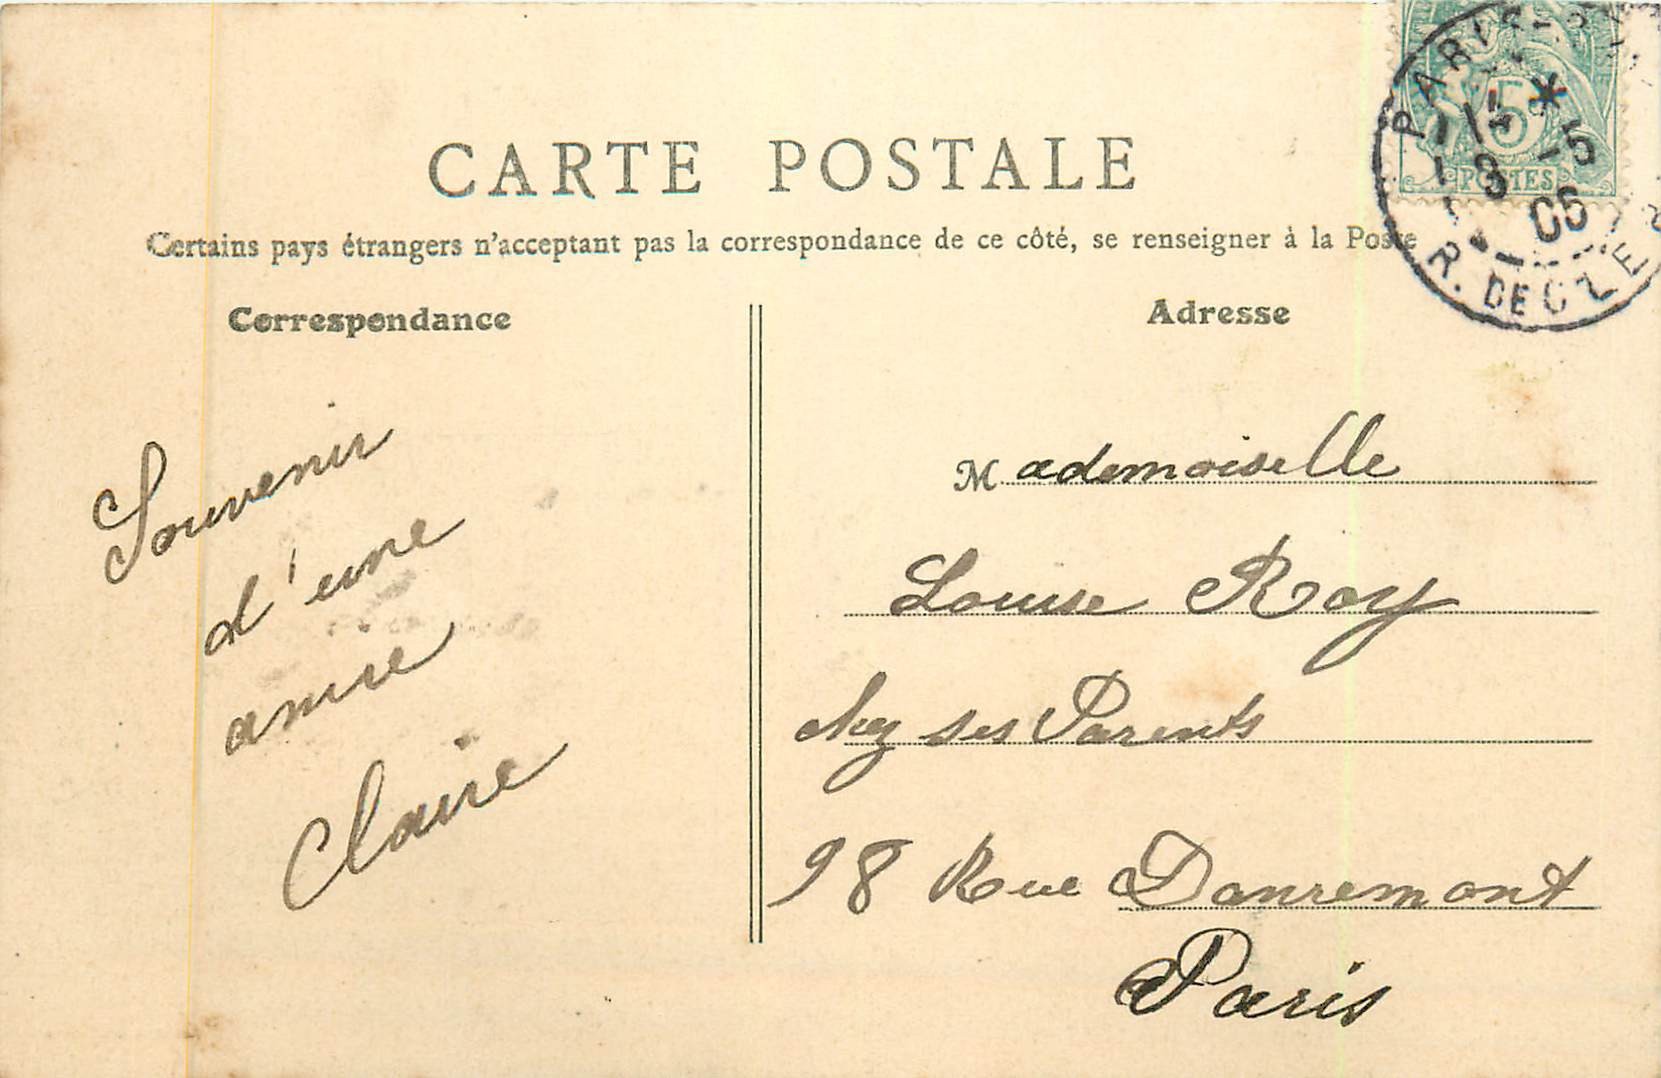 CARTE POSTALE
Certains pays étrangers n'acceptant pas la correspondance de ce côté, se renseigner à la Poste
Correspondance
Souvenir
d'une
amie
Claire
Adresse
Mademoiselle
Louise Roy
chez ses Parents
98 Rue Danremont
Paris
5
POSTES
PARIS
8 -5
05
R. DE CLER